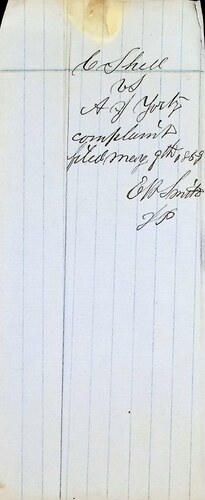 C Shell
vs
A J York
complaint
filed May 9th 1859
E W Smith
JP